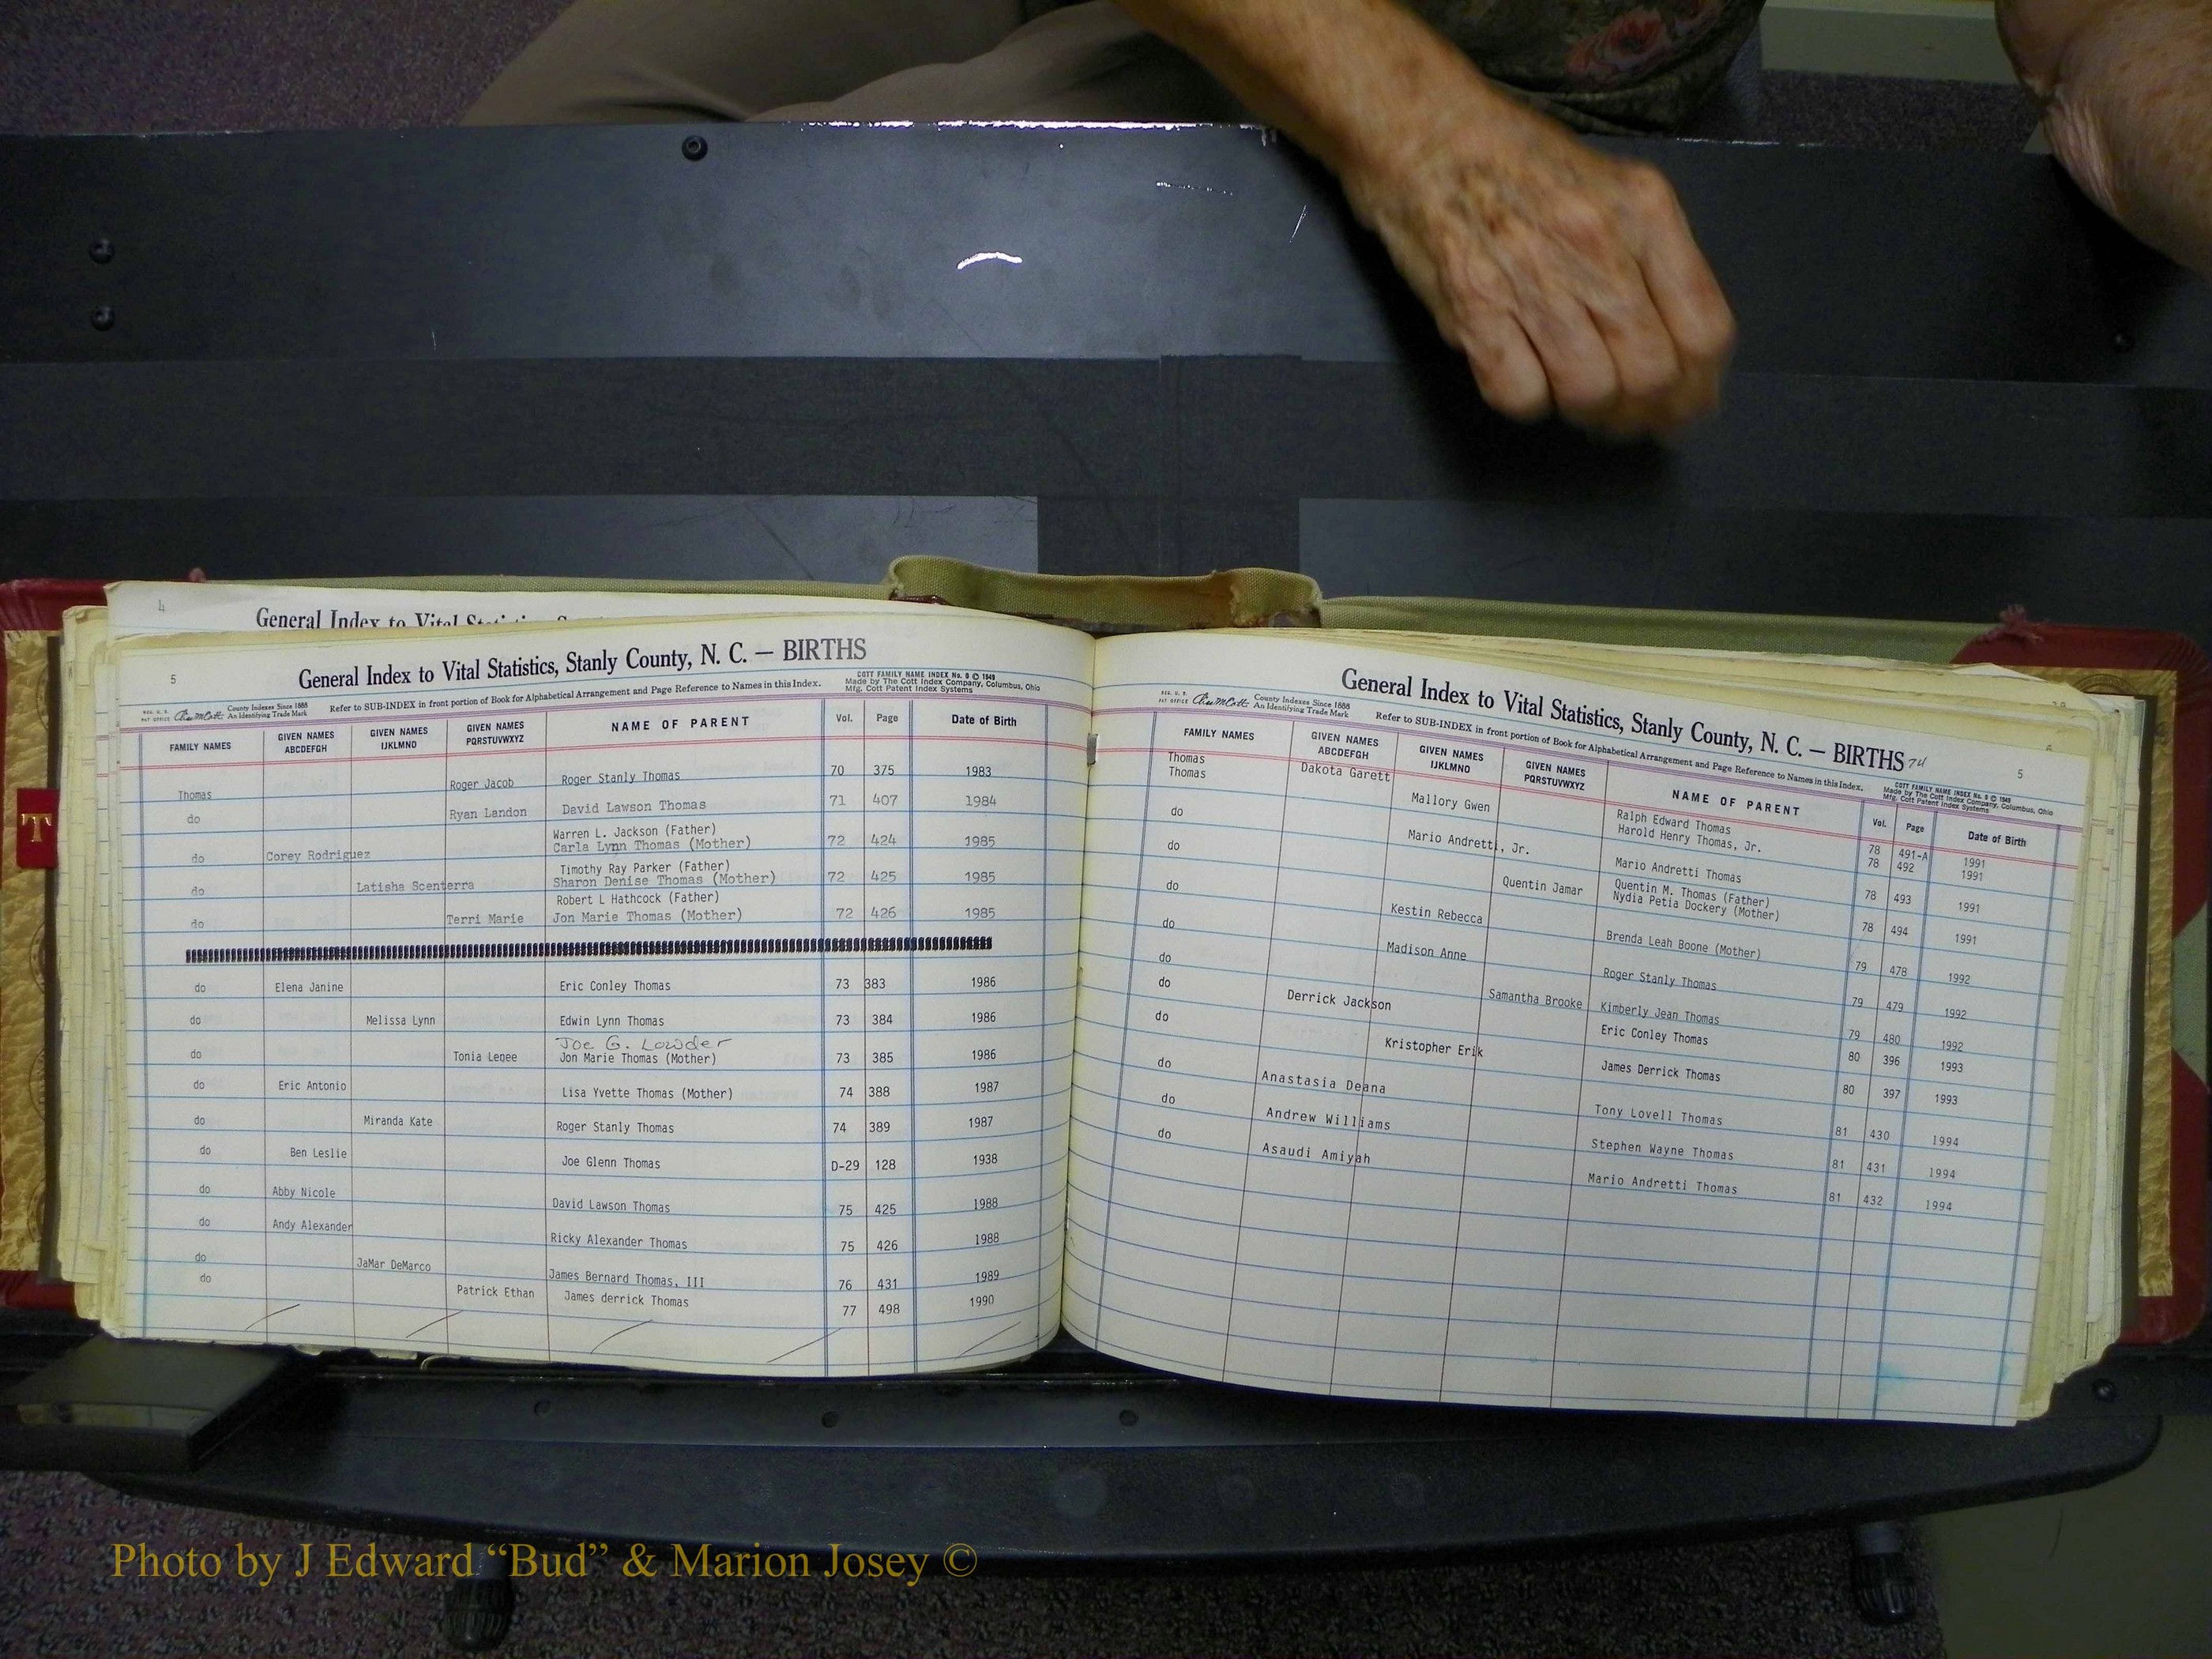 4
General Index to Vital Statistics
5
General Index to Vital Statistics, Stanly County, N. C. — BIRTHS
COTT FAMILY NAME INDEX No. 0 © 1949
Made by The Cott Index Company, Columbus, Ohio
Mfg. Cott Patent Index Systems
REG. U. S. PAT OFFICE County Indexes Since 1888 An Identifying Trade Mark
Refer to SUB-INDEX in front portion of Book for Alphabetical Arrangement and Page Reference to Names in this Index.
FAMILY NAMES GIVEN NAMES ABCDEFGH GIVEN NAMES IJKLMNO GIVEN NAMES PQRSTUVWXYZ NAME OF PARENT Vol. Page Date of Birth
Thomas Roger Jacob Roger Stanly Thomas 70 375 1983
do Ryan Landon David Lawson Thomas 71 407 1984
Warren L. Jackson (Father)
do Corey Rodriguez Carla Lynn Thomas (Mother) 72 424 1985
Timothy Ray Parker (Father)
do Latisha Scenterra Sharon Denise Thomas (Mother) 72 425 1985
Robert L Hathcock (Father)
do Terri Marie Jon Marie Thomas (Mother) 72 426 1985
do Elena Janine Eric Conley Thomas 73 383 1986
do Melissa Lynn Edwin Lynn Thomas 73 384 1986
Joe G. Lowder
do Tonia Lenee Jon Marie Thomas (Mother) 73 385 1986
do Eric Antonio Lisa Yvette Thomas (Mother) 74 388 1987
do Miranda Kate Roger Stanly Thomas 74 389 1987
do Ben Leslie Joe Glenn Thomas D-29 128 1938
do Abby Nicole David Lawson Thomas 75 425 1988
do Andy Alexander Ricky Alexander Thomas 75 426 1988
do JaMar DeMarco James Bernard Thomas, III 76 431 1989
do Patrick Ethan James derrick Thomas 77 498 1990
T
General Index to Vital Statistics, Stanly County, N. C. — BIRTHS 74
5
COTT FAMILY NAME INDEX No. 0 © 1949
Made by The Cott Index Company, Columbus, Ohio
Mfg. Cott Patent Index Systems
REG. U. S. PAT OFFICE County Indexes Since 1888 An Identifying Trade Mark
Refer to SUB-INDEX in front portion of Book for Alphabetical Arrangement and Page Reference to Names in this Index.
FAMILY NAMES GIVEN NAMES ABCDEFGH GIVEN NAMES IJKLMNO GIVEN NAMES PQRSTUVWXYZ NAME OF PARENT Vol. Page Date of Birth
Thomas Dakota Garett Ralph Edward Thomas 78 491-A 1991
Thomas Mallory Gwen Harold Henry Thomas, Jr. 78 492 1991
do Mario Andretti, Jr. Mario Andretti Thomas 78 493 1991
do Quentin Jamar Quentin M. Thomas (Father) 78 494 1991
Nydia Petia Dockery (Mother)
do Kestin Rebecca Brenda Leah Boone (Mother) 79 478 1992
do Madison Anne Roger Stanly Thomas 79 479 1992
do Samantha Brooke Kimberly Jean Thomas 79 480 1992
do Derrick Jackson Eric Conley Thomas 80 396 1993
do Kristopher Erik James Derrick Thomas 80 397 1993
do Anastasia Deana Tony Lovell Thomas 81 430 1994
do Andrew Williams Stephen Wayne Thomas 81 431 1994
do Asaudi Amiyah Mario Andretti Thomas 81 432 1994
Photo by J Edward “Bud” & Marion Josey ©